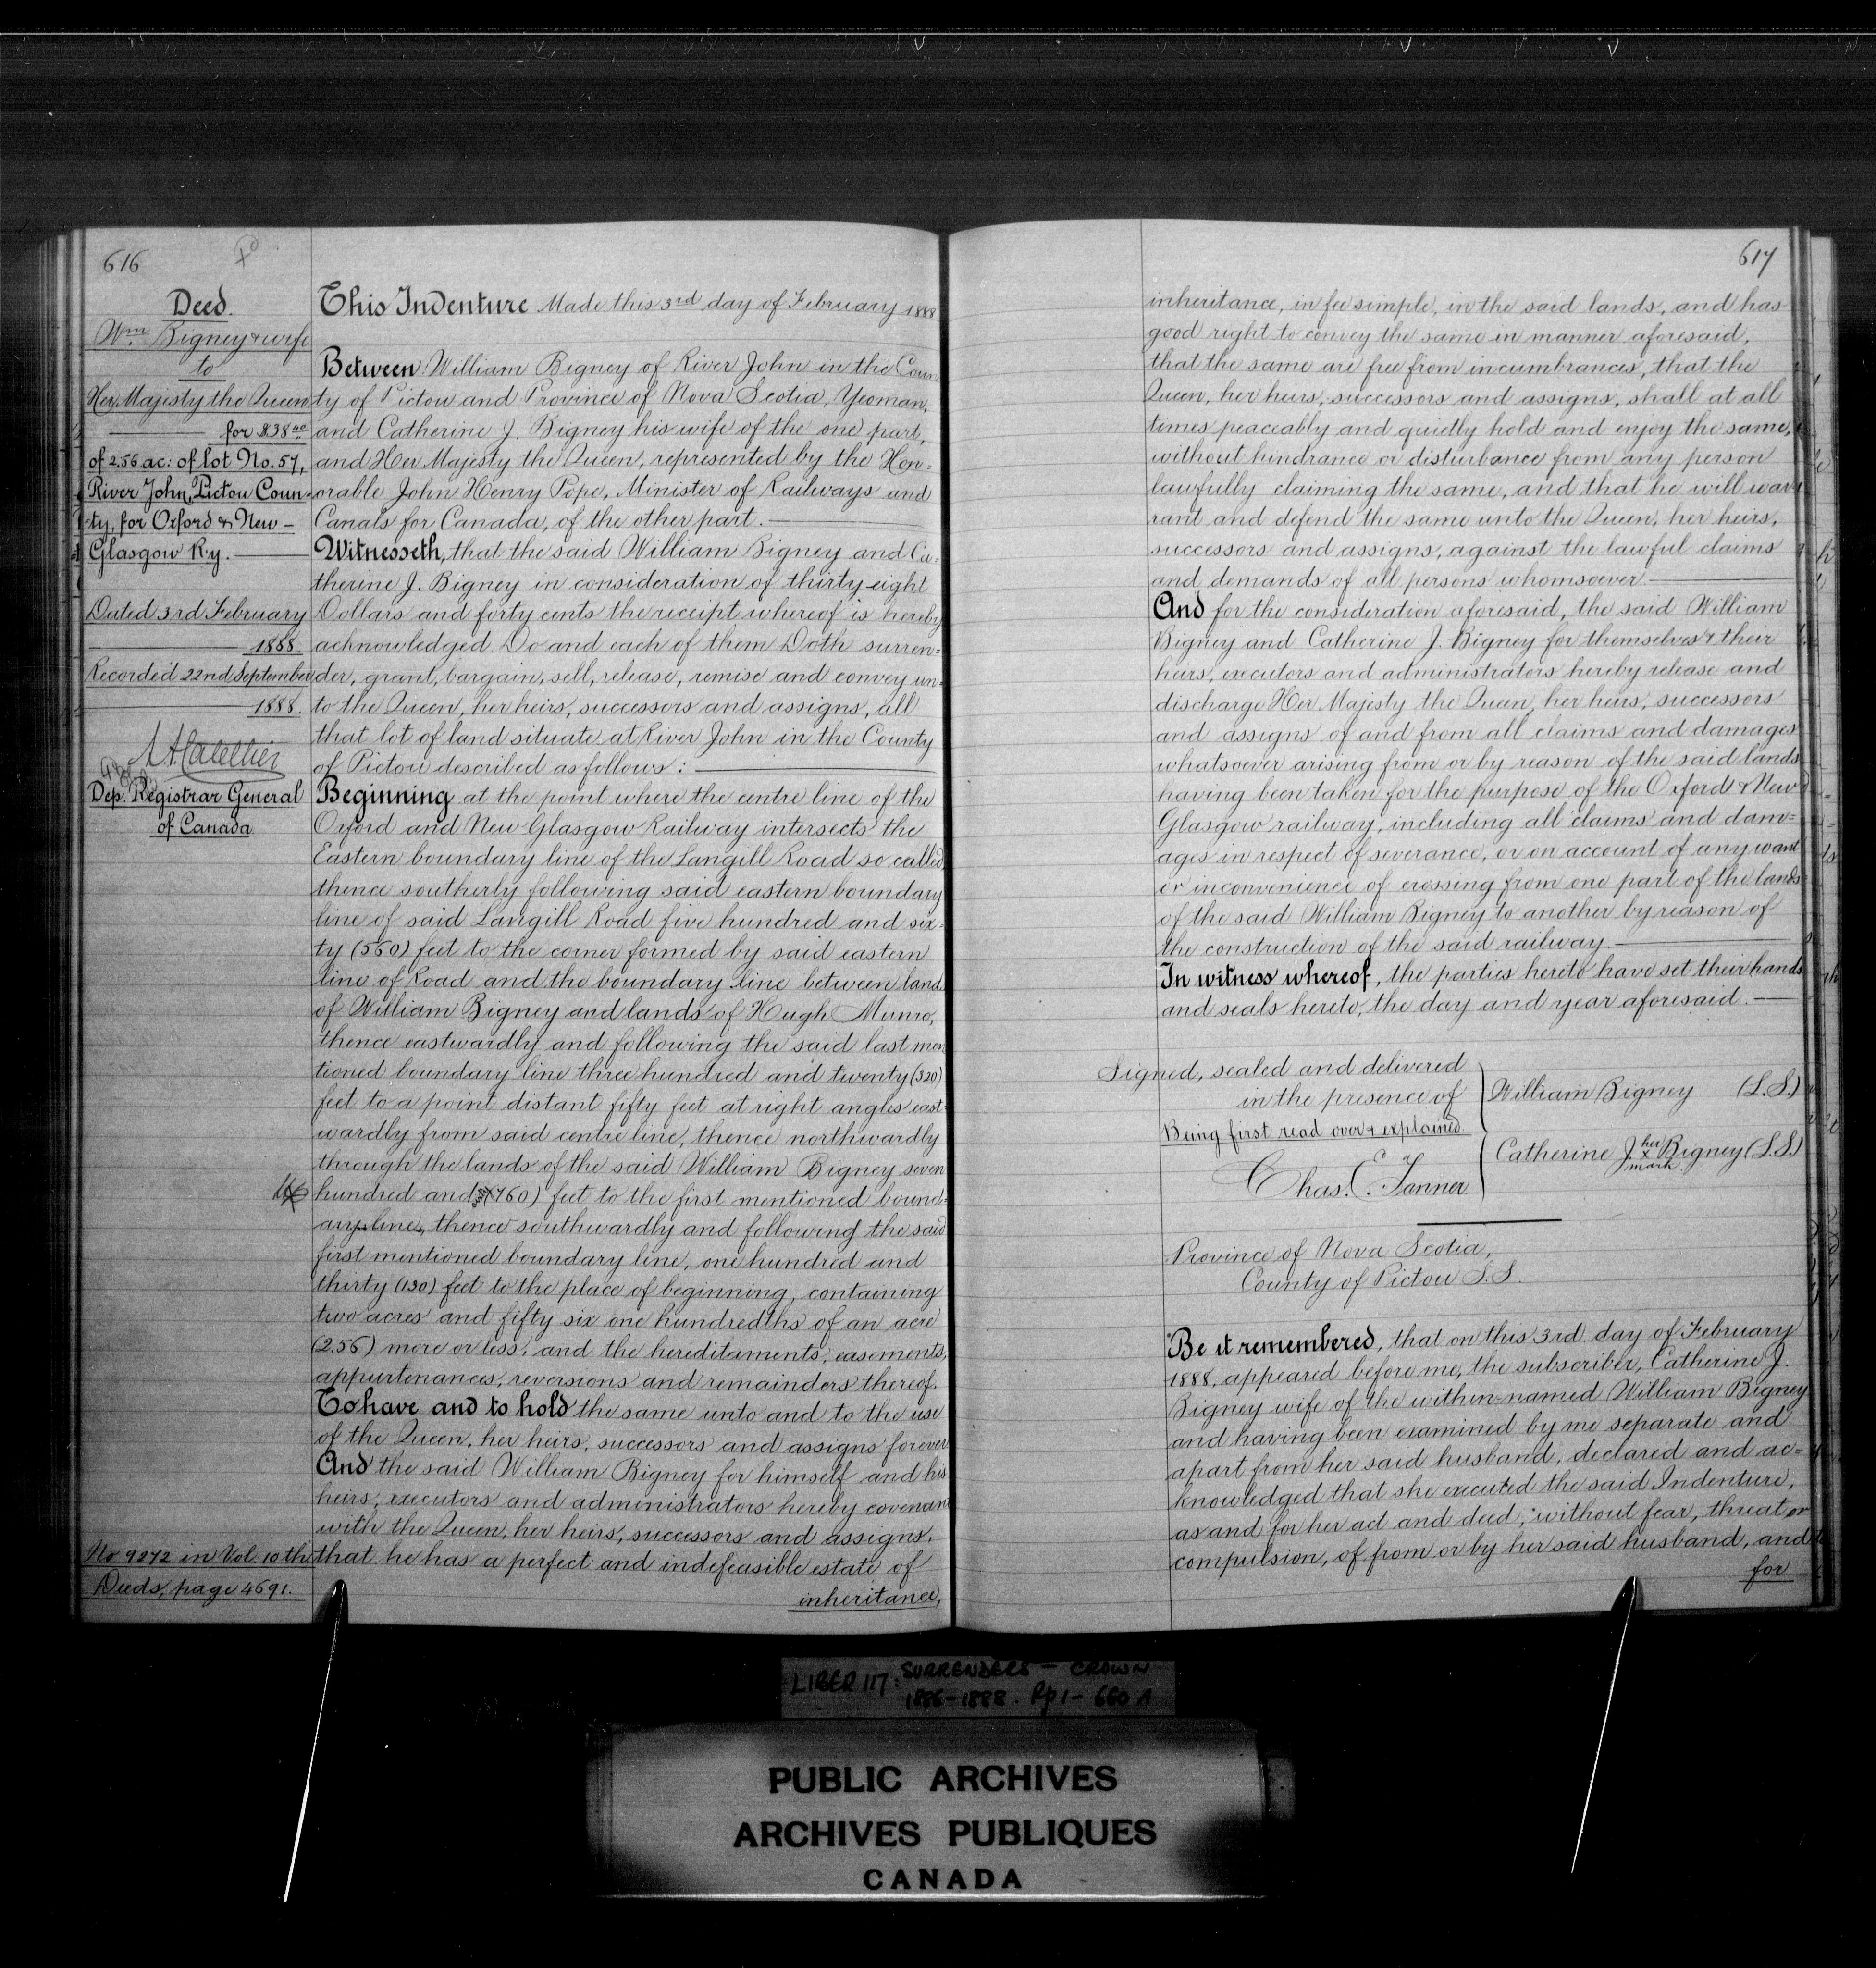 616
Deed.
Wm Bigney & wife
to
Her Majesty the Queen
for $38 40
of 2.56 ac: of lot No. 57,
River John, Pictou Coun-
ty, for Oxford & New-
Glasgow Ry.
Dated 3rd February
1888.
Recorded 22nd September
1888.
Dep. Registrar General
of Canada
No. 9272 in Vol: 10 th
Deeds, page 4691.
This Indenture Made this 3rd day of February 1888
Between William Bigney of River John in the Coun-
ty of Pictou and Province of Nova Scotia, Yeoman,
and Catherine J. Bigney his wife of the one part,
and Her Majesty the Queen, represented by the Hon-
orable John Henry Pope, Minister of Railways and
Canals for Canada, of the other part.
Witnesseth, that the said William Bigney and Ca-
therine J. Bigney in consideration of thirty-eight
Dollars and forty cents the receipt whereof is hereby
acknowledged Do and each of them Doth surren-
der, grant, bargain, sell, release, remise and convey un-
to the Queen, her heirs, successors and assigns, all
that lot of land situate at River John in the County
of Pictou described as follows:
Beginning at the point where the centre line of the
Oxford and New Glasgow Railway intersects the
Eastern boundary line of the Langill Road so called,
thence southerly following said eastern boundary
line of said Langill Road five hundred and six-
ty (560) feet to the corner formed by said eastern
line of Road and the boundary line between land
of William Bigney and lands of Hugh Munro,
thence eastwardly and following the said last men
tioned boundary line three hundred and twenty (320)
feet to a point distant fifty feet at right angles east-
wardly from said centre line, thence northwardly
through the lands of the said William Bigney seven
hundred and (760) feet to the first mentioned bound-
ary line, thence southwardly and following the said
first mentioned boundary line, one hundred and
thirty (130) feet to the place of beginning, containing
two acres and fifty six one hundredths of an acre
(2.56) more or less, and the hereditaments, easements,
appurtenances, reversions and remainders thereof.
To have and to hold the same unto and to the use
of the Queen, her heirs, successors and assigns forever
And the said William Bigney for himself and his
heirs, executors and administrators hereby covenant
with the Queen, her heirs, successors and assigns.
that he has a perfect and indefeasible estate of
inheritance,
617
inheritance, in fee simple, in the said lands, and has
good right to convey the same in manner aforesaid,
that the same are free from incumbrances, that the
Queen, her heirs, successors and assigns, shall at all
times peaceably and quietly hold and enjoy the same,
without hindrance or disturbance from any person
lawfully claiming the same, and that he will war-
rant and defend the same unto the Queen, her heirs,
successors and assigns, against the lawful claims
and demands of all persons whomsoever
And for the consideration aforesaid, the said William
Bigney and Catherine J. Bigney for themselves & their
heirs, executors and administrators hereby release and
discharge Her Majesty the Queen, her heirs, successors
and assigns of and from all claims and damages
whatsoever arising from or by reason of the said lands
having been taken for the purpose of the Oxford & New
Glasgow railway, including all claims and dam-
ages in respect of severance, or on account of any want
or inconvenience of crossing from one part of the lands
of the said William Bigney to another by reason of
the construction of the said railway.
In witness whereof, the parties hereto have set their hands
and seals hereto, the day and year aforesaid.
Signed, sealed and delivered
in the presence of
Being first read over & explained
Chas. E. Tanner
William Bigney (L.S.)
Catherine J. her x mark Bigney (L.S.)
Province of Nova Scotia,
County of Pictou S.S.
Be it remembered, that on this 3rd day of February
1888, appeared before me, the subscriber, Catherine J.
Bigney wife of the within-named William Bigney
and having been examined by me separate and
apart from her said husband, declared and ac-
knowledged that she executed the said Indenture,
as and for her act and deed, without fear, threat or
compulsion, of from or by her said husband, and
for
LIBER 117: SURRENDERS – CROWN
1886-1888. Pp 1- 660 A
PUBLIC ARCHIVES
ARCHIVES PUBLIQUES
CANADA